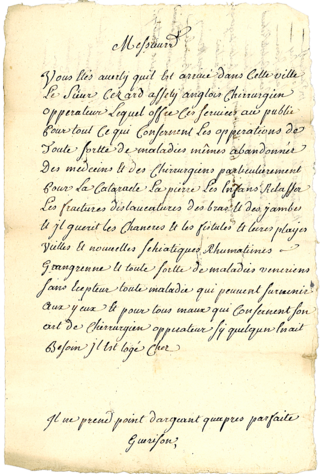 Messieurs
Vous êtes averty quil Est arrivé dans Cette ville
Le Sieur Cezard assely anglois Chirurgien
opperateur Lequel offre Ces services au public
pour tout Ce qui Consernent Les opperations de
Toute sortte de maladies mêmes abandonnée
Des medecins Et des Chirurgiens particulierement
pour La Cataracte La pierre Les Enfans
Les fractures dislaucatures des bras Et des jambes
Et jl guerit les Chancres Et les fistules Et leures playes
vielles Et nouvelles schiatiques Rhumatimes
Grangrenne Et toute sortte de maladies veneriens
sans Exepteur toute maladie qui peuvent survenir
aux yeux Et pour tous maux qui Consernent son
art de Chirurgien opperateur sy quelquun Enait
Besoin jl Est logé Chez
Il ne prend point dargeant quapres parfaite
Guerison,